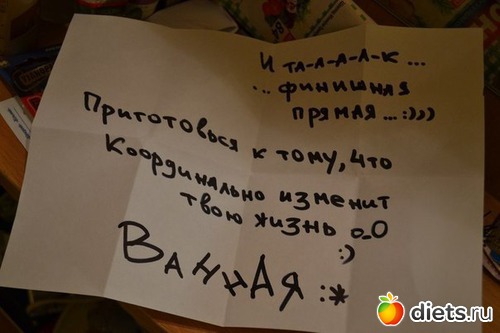 И ТА-А-А-А-К...
... ФИНИШНАЯ
ПРЯМАЯ...:)))
Приготовься к тому, что
Координально изменит
твою жизнь о_О
:)
ВАННАЯ :*
diets.ru